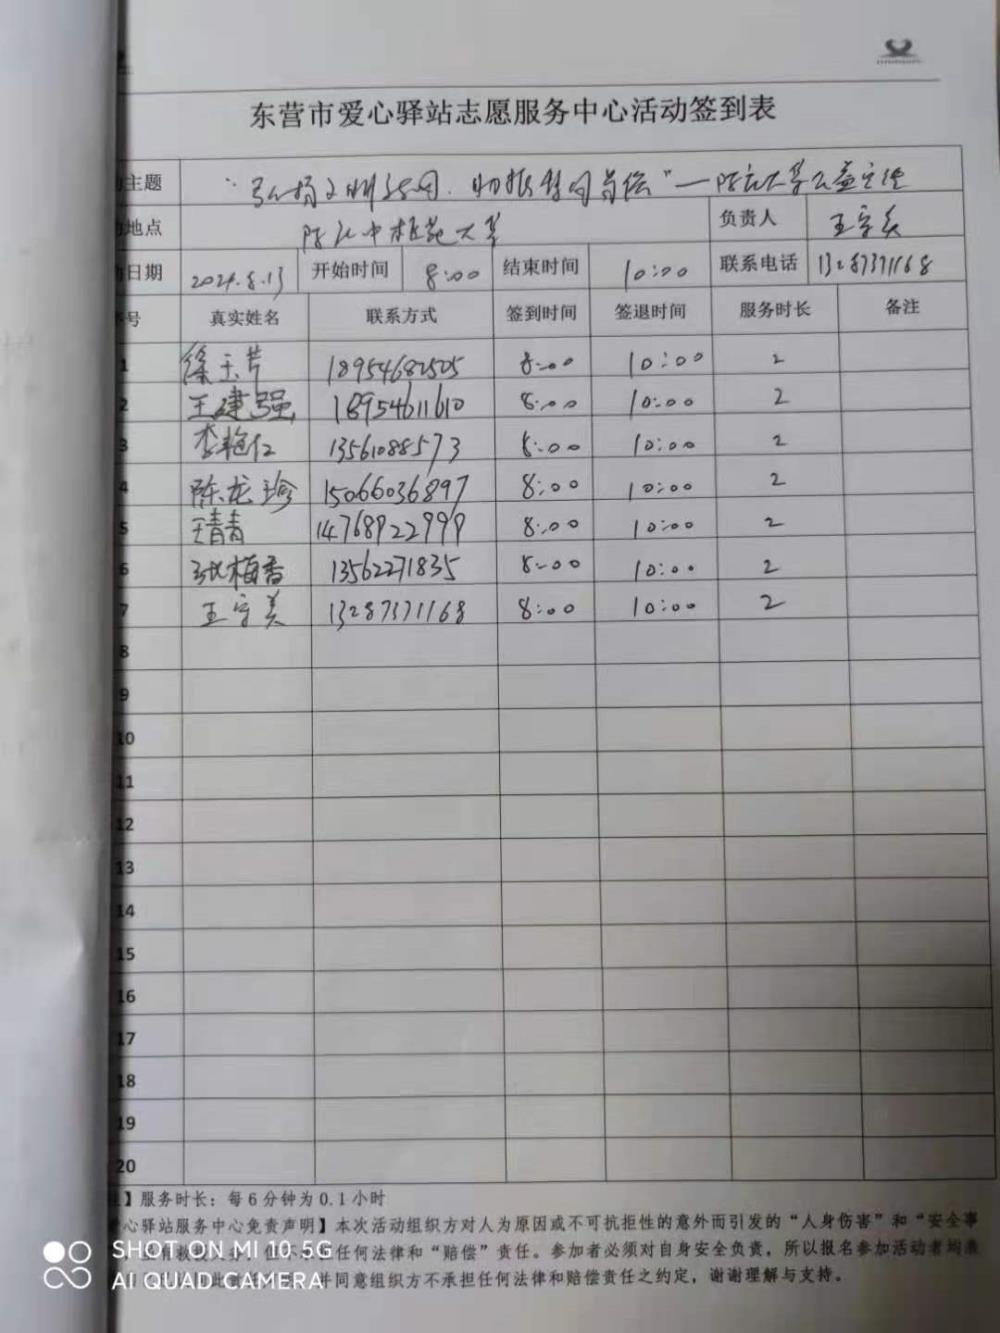 东营市爱心驿站志愿服务中心活动签到表
主题 "弘扬文明
地点 负责人 王守美
日期 2024.8.13 开始时间 8:00 结束时间 10:00 联系电话 13287371168
号 真实姓名 联系方式 签到时间 签退时间 服务时长 备注
1 徐玉芹 18954682525 8:00 10:00 2
2 王建强 18954611610 8:00 10:00 2
3 李艳红 13561088573 8:00 10:00 2
4 陈龙珍 15066036897 8:00 10:00 2
5 王青青 14768922999 8:00 10:00 2
6 张梅香 13562271835 8:00 10:00 2
7 王守美 13287371168 8:00 10:00 2
8
9
10
11
12
13
14
15
16
17
18
19
20
】服务时长：每6分钟为0.1小时
心驿站服务中心免责声明】本次活动组织方对人为原因或不可抗拒性的意外而引发的“人身伤害”和“安全事
任何法律和“赔偿”责任。参加者必须对自身安全负责，所以报名参加活动者均表
并同意组织方不承担任何法律和赔偿责任之约定，谢谢理解与支持。
SHOT ON MI 10 5G
AI QUAD CAMERA